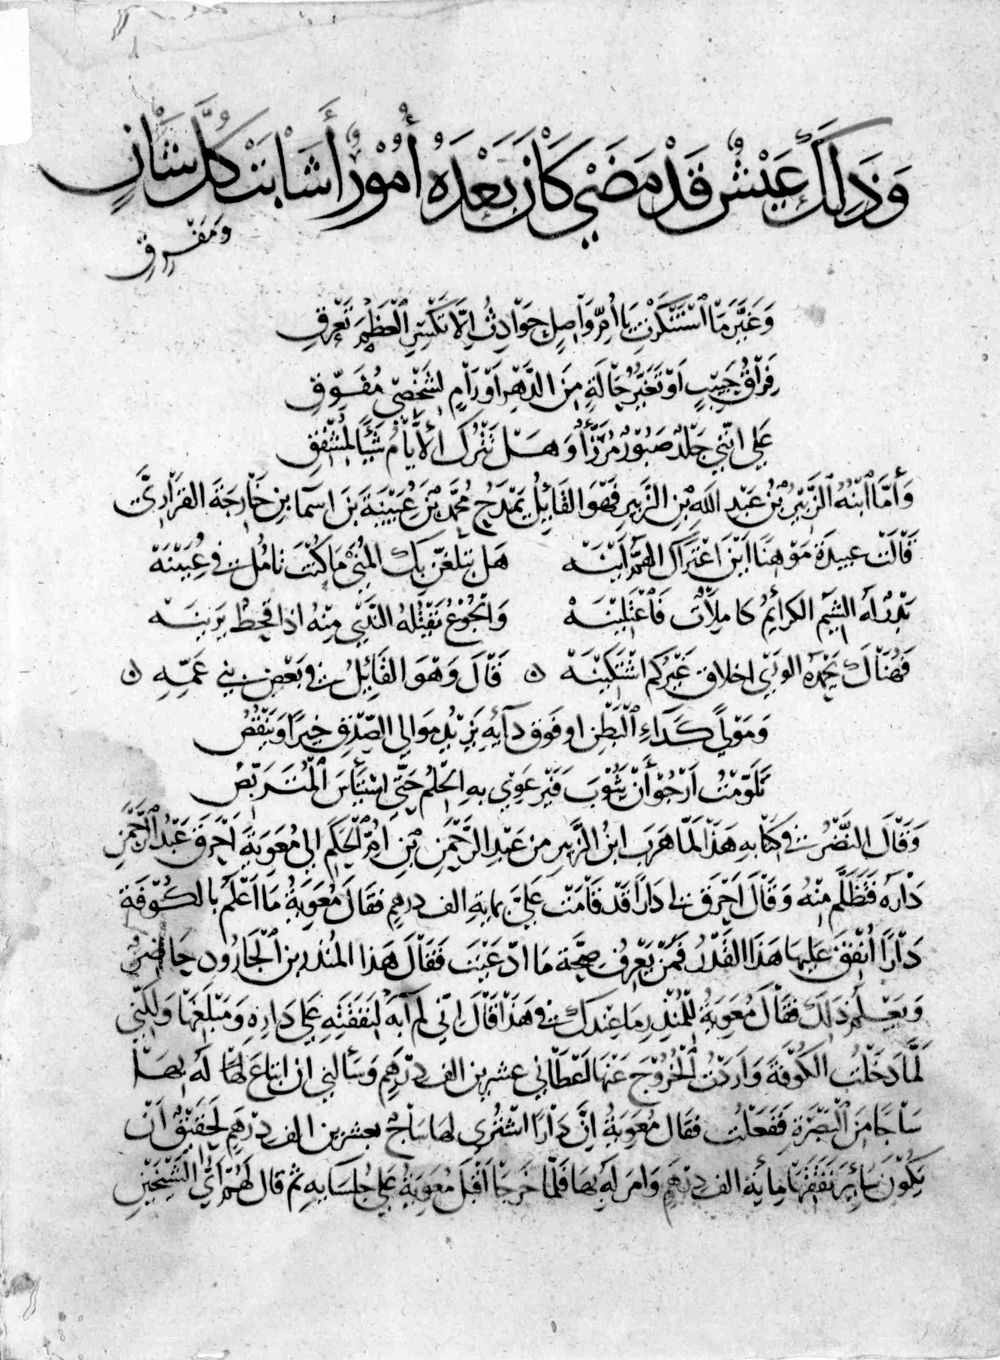 وَذَلِكَ عَيْشٌ قَدْ مَضَى كَانَ بَعْدَهُ أُمُورٌ أَشَابَتْ كُلَّ شَانٍ
وَمَفْرِقِ
وَغَيَّرَ مَا اسْتَنْكَرْتِ يَا أُمَّ وَاصِلٍ حَوَادِثُ إِلَّا تَكْسِرِ الْعَظْمَ تَعْرُقِ
فِرَاقُ حَبِيبٍ أَوْ تَغَيُّرُ حَالَةٍ مِنَ الدَّهْرِ أَوْ رَامٍ لِشَخْصِي مُفَوِّقِ
عَلَى أَنَّنِي جَلْدٌ صَبُورٌ مُرَزَّأٌ وَهَلْ تَتْرُكُ الْأَيَّامُ شَيْئًا لِمُشْفِقِ
وَأَمَّا ابْنُهُ الزُّبَيْرُ بْنُ عَبْدِ اللهِ بْنِ الزَّبِيرِ فَهُوَ الْقَائِلُ يَمْدَحُ مُحَمَّدَ بْنَ عُيَيْنَةَ بْنَ اسْمَا بْنِ خَارِجَةَ الفَزَارِيَّ
قَالَتْ عبيدَة مَوْهِنًا أَيْنَ اعْتَرَاكَ الهَمُّ أَيْنَهْ هَلْ تَبْلُغَنّ بِكَ المُنَى مَا كُنْتَ تَامُلُ فِي عُيَيْنَهْ
بَدْرٌ لَهُ الشِّيَمُ الكَرَائِمُ كَامِلَاتٌ فَاعْتَلَيْنَهْ وَالْجُوعُ يَقْتُلُهُ النَّدَى مِنْهُ إِذَا قَحْطٌ تَرَيْنَهْ
فَهُنَاكَ يَحْمَدُهُ الوَرَى أَخْلَاقَ غَيْرِكُم اشْتَكَيْنَهْ ۞ قَالَ وَهْوَ القَائِلُ فِي بَعْضِ بَنِي عَمِّهِ ۞
وَمَوْلًى كَدَاءِ الْبَطْنِ أَوْ فَوْقَ دَائِهِ يَزِيدُ مَوَالِي الصِّدْقِ خَيْرًا وَيَنْقُصُ
تَلَوَّمْتُ أَرْجُو أَنْ يَثُوبَ فَيَرْعَوِي بِهِ الْحِلْمُ حَتَّى اسْتَيْأَسَ الْمُتَرَبِّصُ
وَقَالَ النَّضْرُ فِي كِتَابِهِ هَذَا لَمَّا هَرَبَ ابْنُ الزَّبِيرِ مِنْ عَبْدِ الرَّحْمَنِ بْنِ أُمِّ الْحَكَمِ إِلَى مُعَوِيَةَ أَحْرَقَ عَبْدُ الرَّحْمَنِ
دَارَهُ فَتَظَلَّمَ مِنْهُ وَقَالَ أَحْرَقَ لِي دَارًا قَدْ قَامَتْ عَلَيَّ بِمايَةِ الف دِرهمٍ فقَالَ مُعَوِيَةُ مَا أَعْلَمُ بِالْكُوفَةِ
دَارًا أُنْفِقَ عَلَيْهَا هَذَا القَدْرُ فَمَنْ يَعْرِفُ صِحَّةَ مَا ادَّعَيْتَ فَقَالَ هَذَا المُنْذِرُ بن الْجَارُود حَاضِرٌ
وَيَعْلَمُ ذَلِكَ فَقَالَ مُعَوِيَةُ لِلْمُنْذِرِ مَا عِنْدَكَ فِي هَذَا قَالَ إِنِّي لَمْ آبَهْ لِنَفَقَتِهِ عَلَى دَارِهِ وَمَبْلَغِهَا وَلَكِنِّي
لَمَّا دَخَلْتُ الكُوفَةَ وَأَرَدْتُ الْخُرُوجَ عَنْهَا أَعْطَانِي عشرين الف دِرْهَمٍ وَسَأَلَنِي أن ابتاعَ لَهُ بِهَا
سَاجًا مِنَ الْبَصْرَةِ فَفَعَلْتُ فَقَالَ مُعَوِيَةُ إِنَّ دَارًا اشْتُرِيَ لَهَا سَاجٌ بعشرين الف دِرْهَمٍ لَحَقِيقٌ أَنْ
يَكُونَ سَائِرُ نَفَقَتِهَا مِايَةَ الف دِرْهَمٍ وَامَرَ لَهُ بِهَا فَلَمَّا خَرَجَا أَقْبَلَ مُعَوِيَةُ عَلَى جُلَسَايِهِ ثُمَّ قَالَ لَهُمْ أَيُّ الشَّيْخَيْنِ